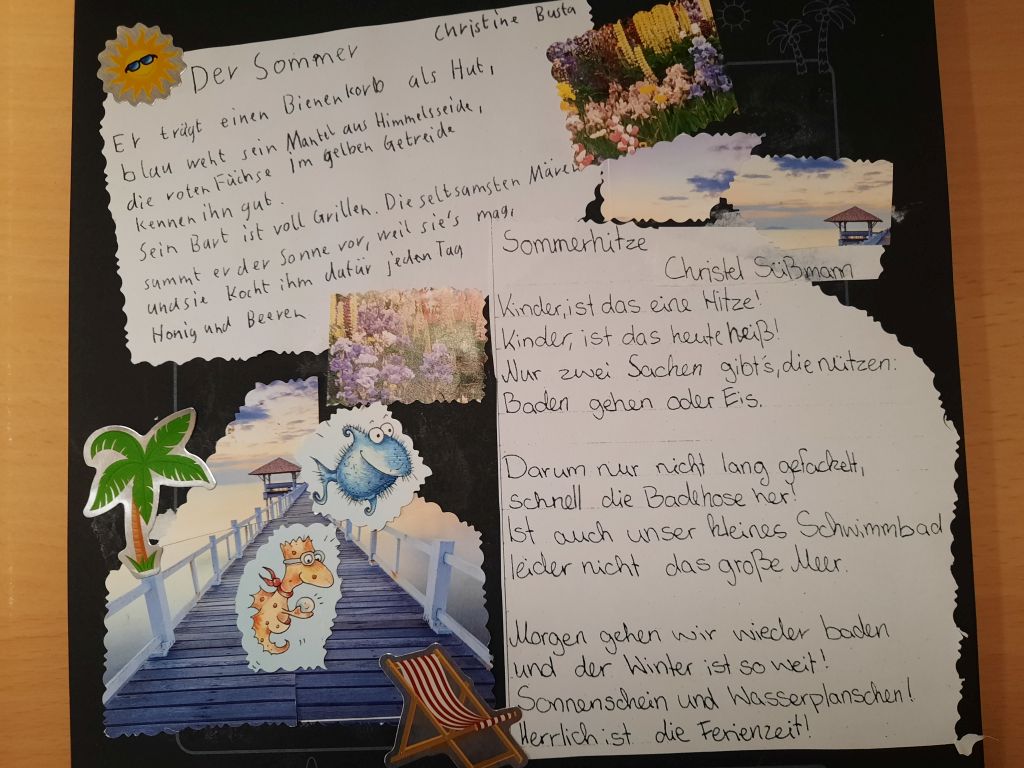 Der Sommer
Christine Busta
Er trägt einen Bienenkorb als Hut,
blau weht sein Mantel aus Himmelsseide,
die roten Füchse im gelben Getreide
kennen ihn gut.
Sein Bart ist voll Grillen. Die seltsamsten Märch
summt er der Sonne vor, weil sie's mag,
und sie kocht ihm dafür jeden Tag
Honig und Beeren
Sommerhitze
Christel Süßmann
Kinder, ist das eine Hitze!
Kinder, ist das heute heiß!
Nur zwei Sachen gibt's, die nützen:
Baden gehen oder Eis.
Darum nur nicht lang gefackelt,
schnell die Badehose her!
Ist auch unser kleines Schwimmbad
leider nicht das große Meer.
Morgen gehen wir wieder baden
und der Winter ist so weit!
Sonnenschein und Wasserplanschen!
Herrlich ist die Ferienzeit!